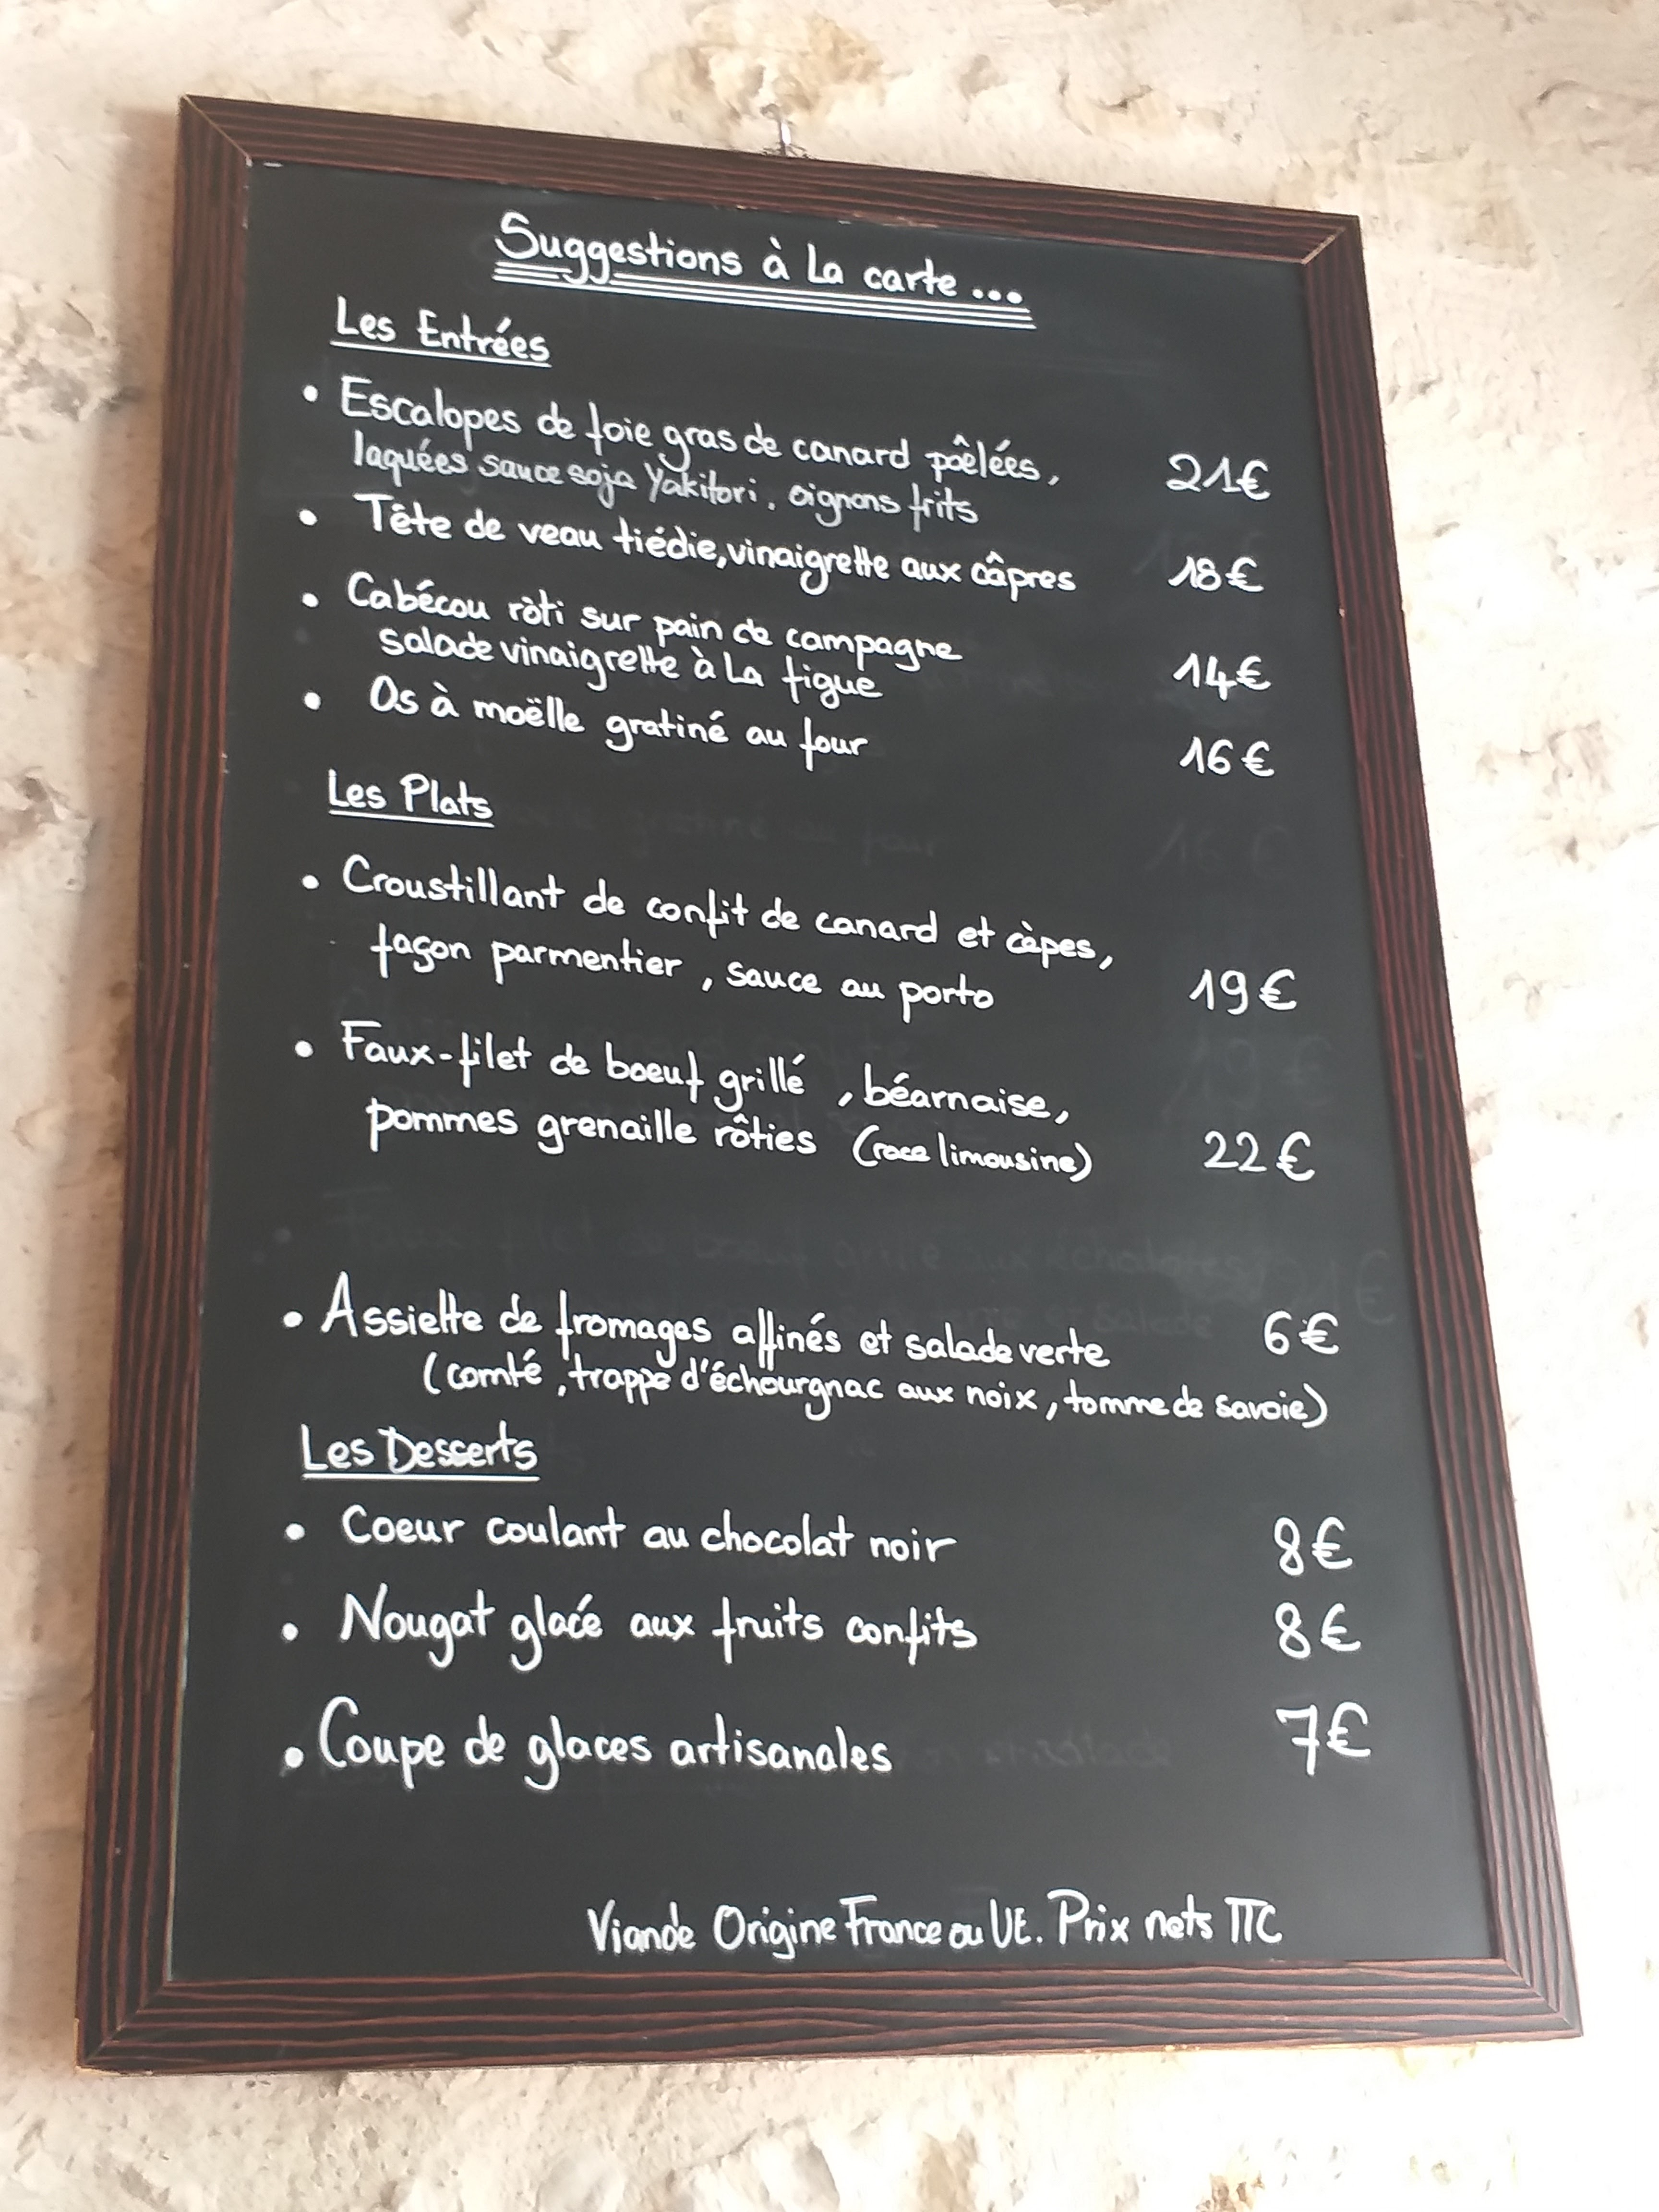 Suggestions à La carte...
Les Entrées
• Escalopes de foie gras de canard pôelées,
laquées sauce soja Yakitori, oignons frits
21€
• Tête de veau tiédie, vinaigrette aux câpres 18€
• Cabécou rôti sur pain de campagne
salade vinaigrette à La figue
14€
• Os à moëlle gratiné au four 16€
Les Plats
• Croustillant de confit de canard et cèpes,
façon parmentier, sauce au porto 19€
• Faux-filet de boeuf grillé, béarnaise,
pommes grenaille rôties (race limousine) 22€
• Assiette de fromages affinés et salade verte 6€
(comté, trappe d'échourgnac aux noix, tomme de savoie)
Les Desserts
• Coeur coulant au chocolat noir 8€
• Nougat glacé aux fruits confits 8€
• Coupe de glaces artisanales 7€
Viande Origine France ou UE. Prix nets TTC